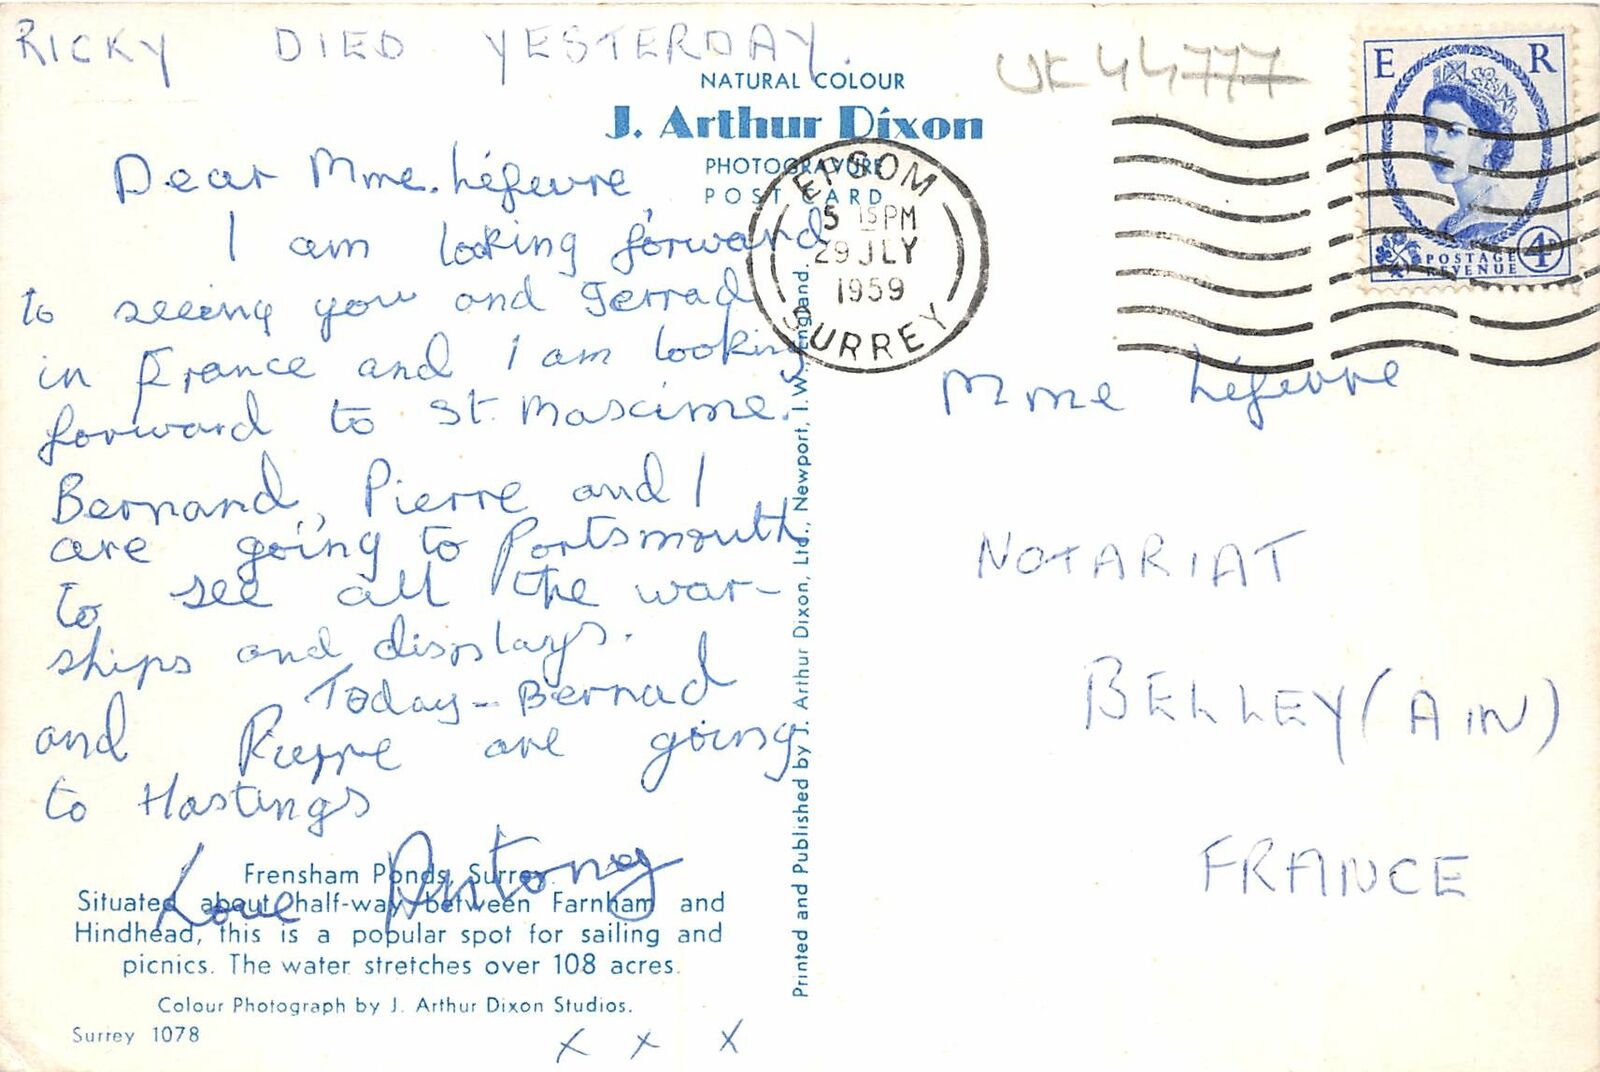 RICKY DIED YESTERDAY.
UK 44777
NATURAL COLOUR
J. Arthur Dixon
PHOTOGRAVURE
POST CARD
E R
POSTAGE
REVENUE
4D
EPSOM
5 15 PM
29 JLY
1959
SURREY
Dear Mme. Léfevre,
I am looking forward
to seeing you and Gerrad
in France and I am looking
forward to St. Maxime.
Bernard, Pierre and I
are going to Portsmouth
to see all the war-
ships and displays.
Today - Bernad
and Pierre are going
to Hastings
Love Antony
x x x
Mme Léfevre
NOTARIAT
BELLEY (AIN)
FRANCE
Frensham Ponds, Surrey.
Situated about half-way between Farnham and
Hindhead, this is a popular spot for sailing and
picnics. The water stretches over 108 acres.
Colour Photograph by J. Arthur Dixon Studios.
Surrey 1078
Printed and Published by J. Arthur Dixon, Ltd., Newport, I.W., England.